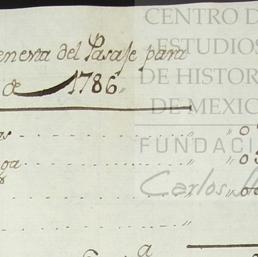 enera del Pasaje para
de 1786
os " " 0
ga " " 0
CENTRO D
ESTUDIOS
DE HISTOR
DE MEXIC
FUNDACI
Carlos
a